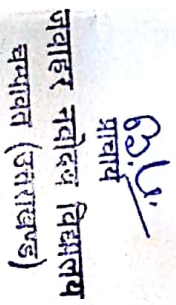 प्राचार्य
जवाहर नवोदय विद्यालय
चम्पावत (उत्तराखण्ड)